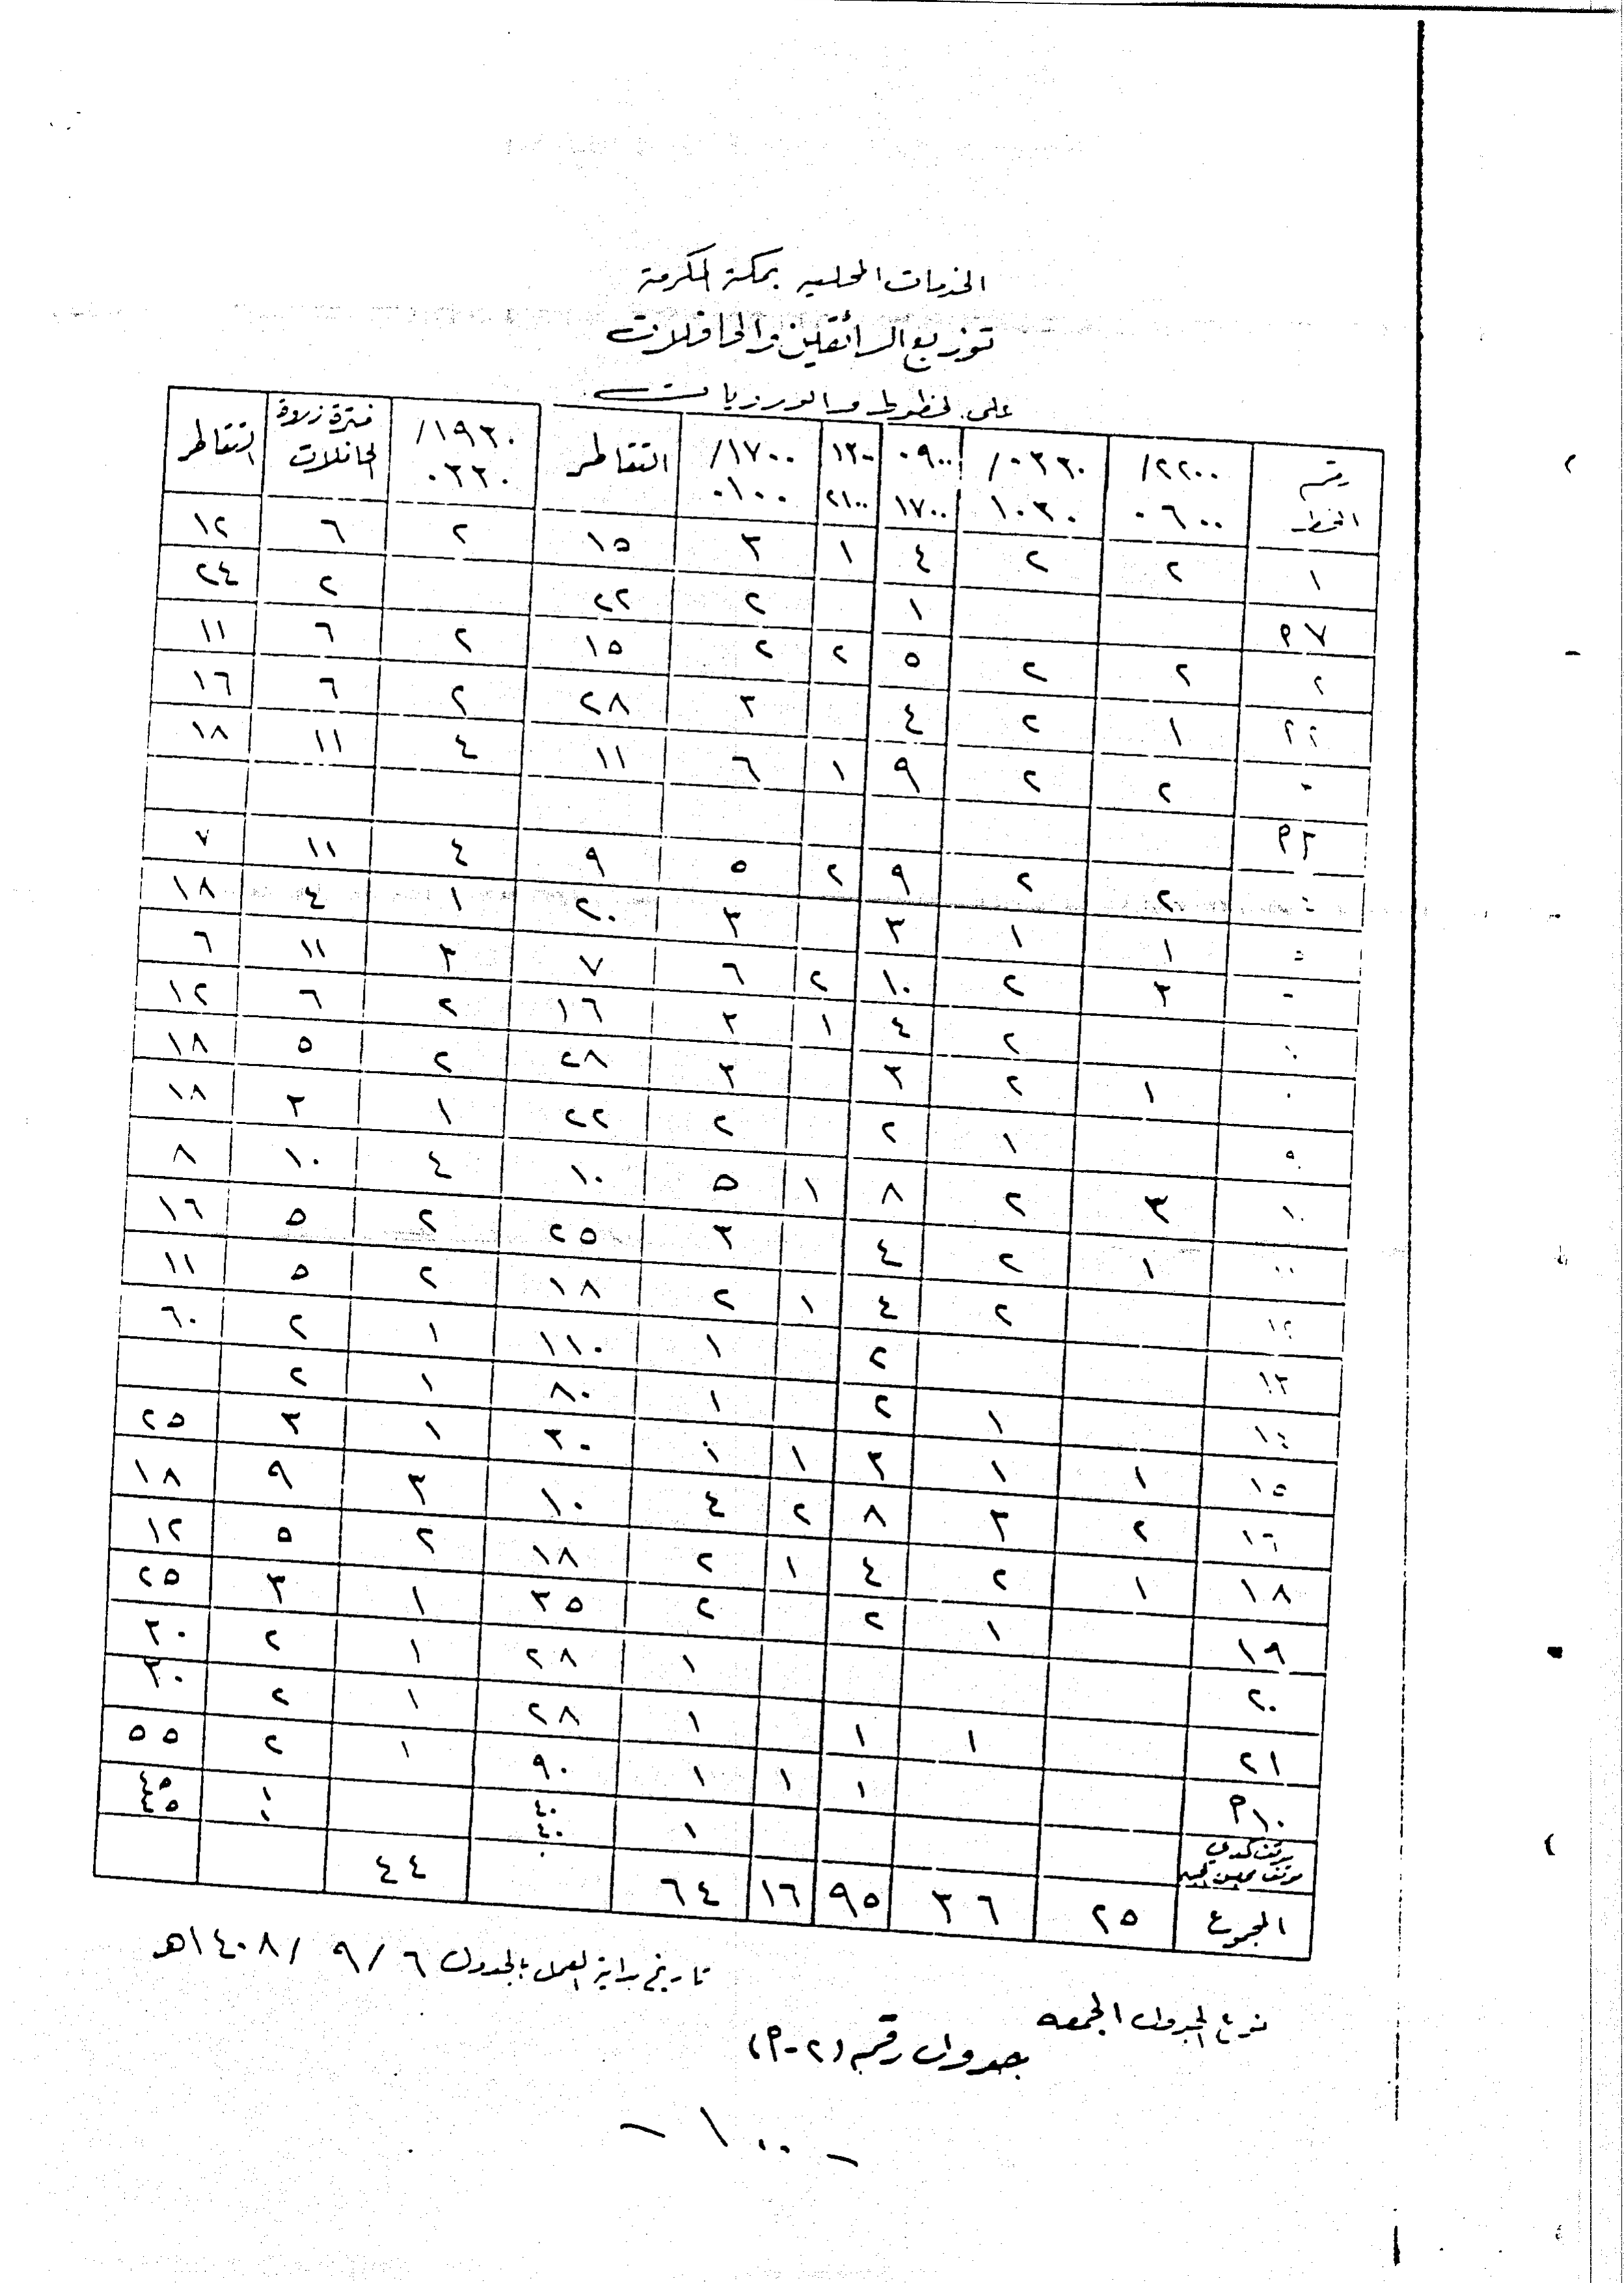 الخدمات المحليه بمكة المكرمة
توزيع السائقين والحافلات
على الخطوط والورديات
رقم الخط ٢٢٠٠/ ٠٦٠٠ ٠٣٣٠/ ١٠٣٠ ٠٩٠٠ ١٧٠٠ ١٣٠٠ ٢١٠٠ ١٧٠٠/ ٠١٠٠ التقاطر ١٩٣٠/ ٠٣٣٠ فترة ذروة الحافلات التقاطر
١ ٢ ٢ ٤ ١ ٣ ١٥ ٢ ٦ ١٢
٧م ١ ٢ ٢٢ ٢ ٢٤
٢ ٢ ٢ ٥ ٢ ٢ ١٥ ٢ ٦ ١١
١ ٢ ٤ ٣ ٢٨ ٢ ٦ ١٦
٢ ٢ ٩ ١ ٦ ١١ ٤ ١١ ١٨
٣م
٢ ٢ ٩ ٢ ٥ ٩ ٤ ١١ ٧
١ ١ ٣ ٣ ٢٠ ١ ٤ ١٨
٣ ٢ ١٠ ٢ ٦ ٧ ٣ ١١ ٦
٢ ٤ ١ ٣ ١٦ ٢ ٦ ١٢
١ ٢ ٣ ٣ ٢٨ ٢ ٥ ١٨
١ ٢ ٢ ٢٢ ١ ٣ ١٨
١٠ ٣ ٢ ٨ ١ ٥ ١٠ ٤ ١٠ ٨
١ ٢ ٤ ٣ ٢٥ ٢ ٥ ١٦
١٢ ٢ ٤ ١ ٢ ١٨ ٢ ٥ ١١
١٣ ٢ ١ ١١٠ ١ ٢ ٦٠
١٤ ١ ٢ ١ ٨٠ ١ ٢
١٥ ١ ١ ٣ ١ ١ ٣٠ ١ ٣ ٢٥
١٦ ٢ ٣ ٨ ٢ ٤ ١٠ ٣ ٩ ١٨
١٨ ١ ٢ ٤ ١ ٢ ١٨ ٢ ٥ ١٢
١٩ ١ ٢ ٢ ٣٥ ١ ٣ ٢٥
٢٠ ١ ٢٨ ١ ٢ ٣٠
٢١ ١ ١ ١ ٢٨ ١ ٢ ٣٠
١٠م ١ ١ ١ ٩٠ ١ ٢ ٥٥
موقف كدي ١ ٤٠ ١ ٤٥
موقف ٤٠ ١ ٤٥
المجموع ٢٥ ٣٦ ٩٥ ١٦ ٦٤ ٤٤
تاريخ بداية العمل بالجدول ٦ / ٩ / ١٤٠٨هـ
نوع الجدول الجمعه
جدول رقم (٢-م)
- ١٠٠ -